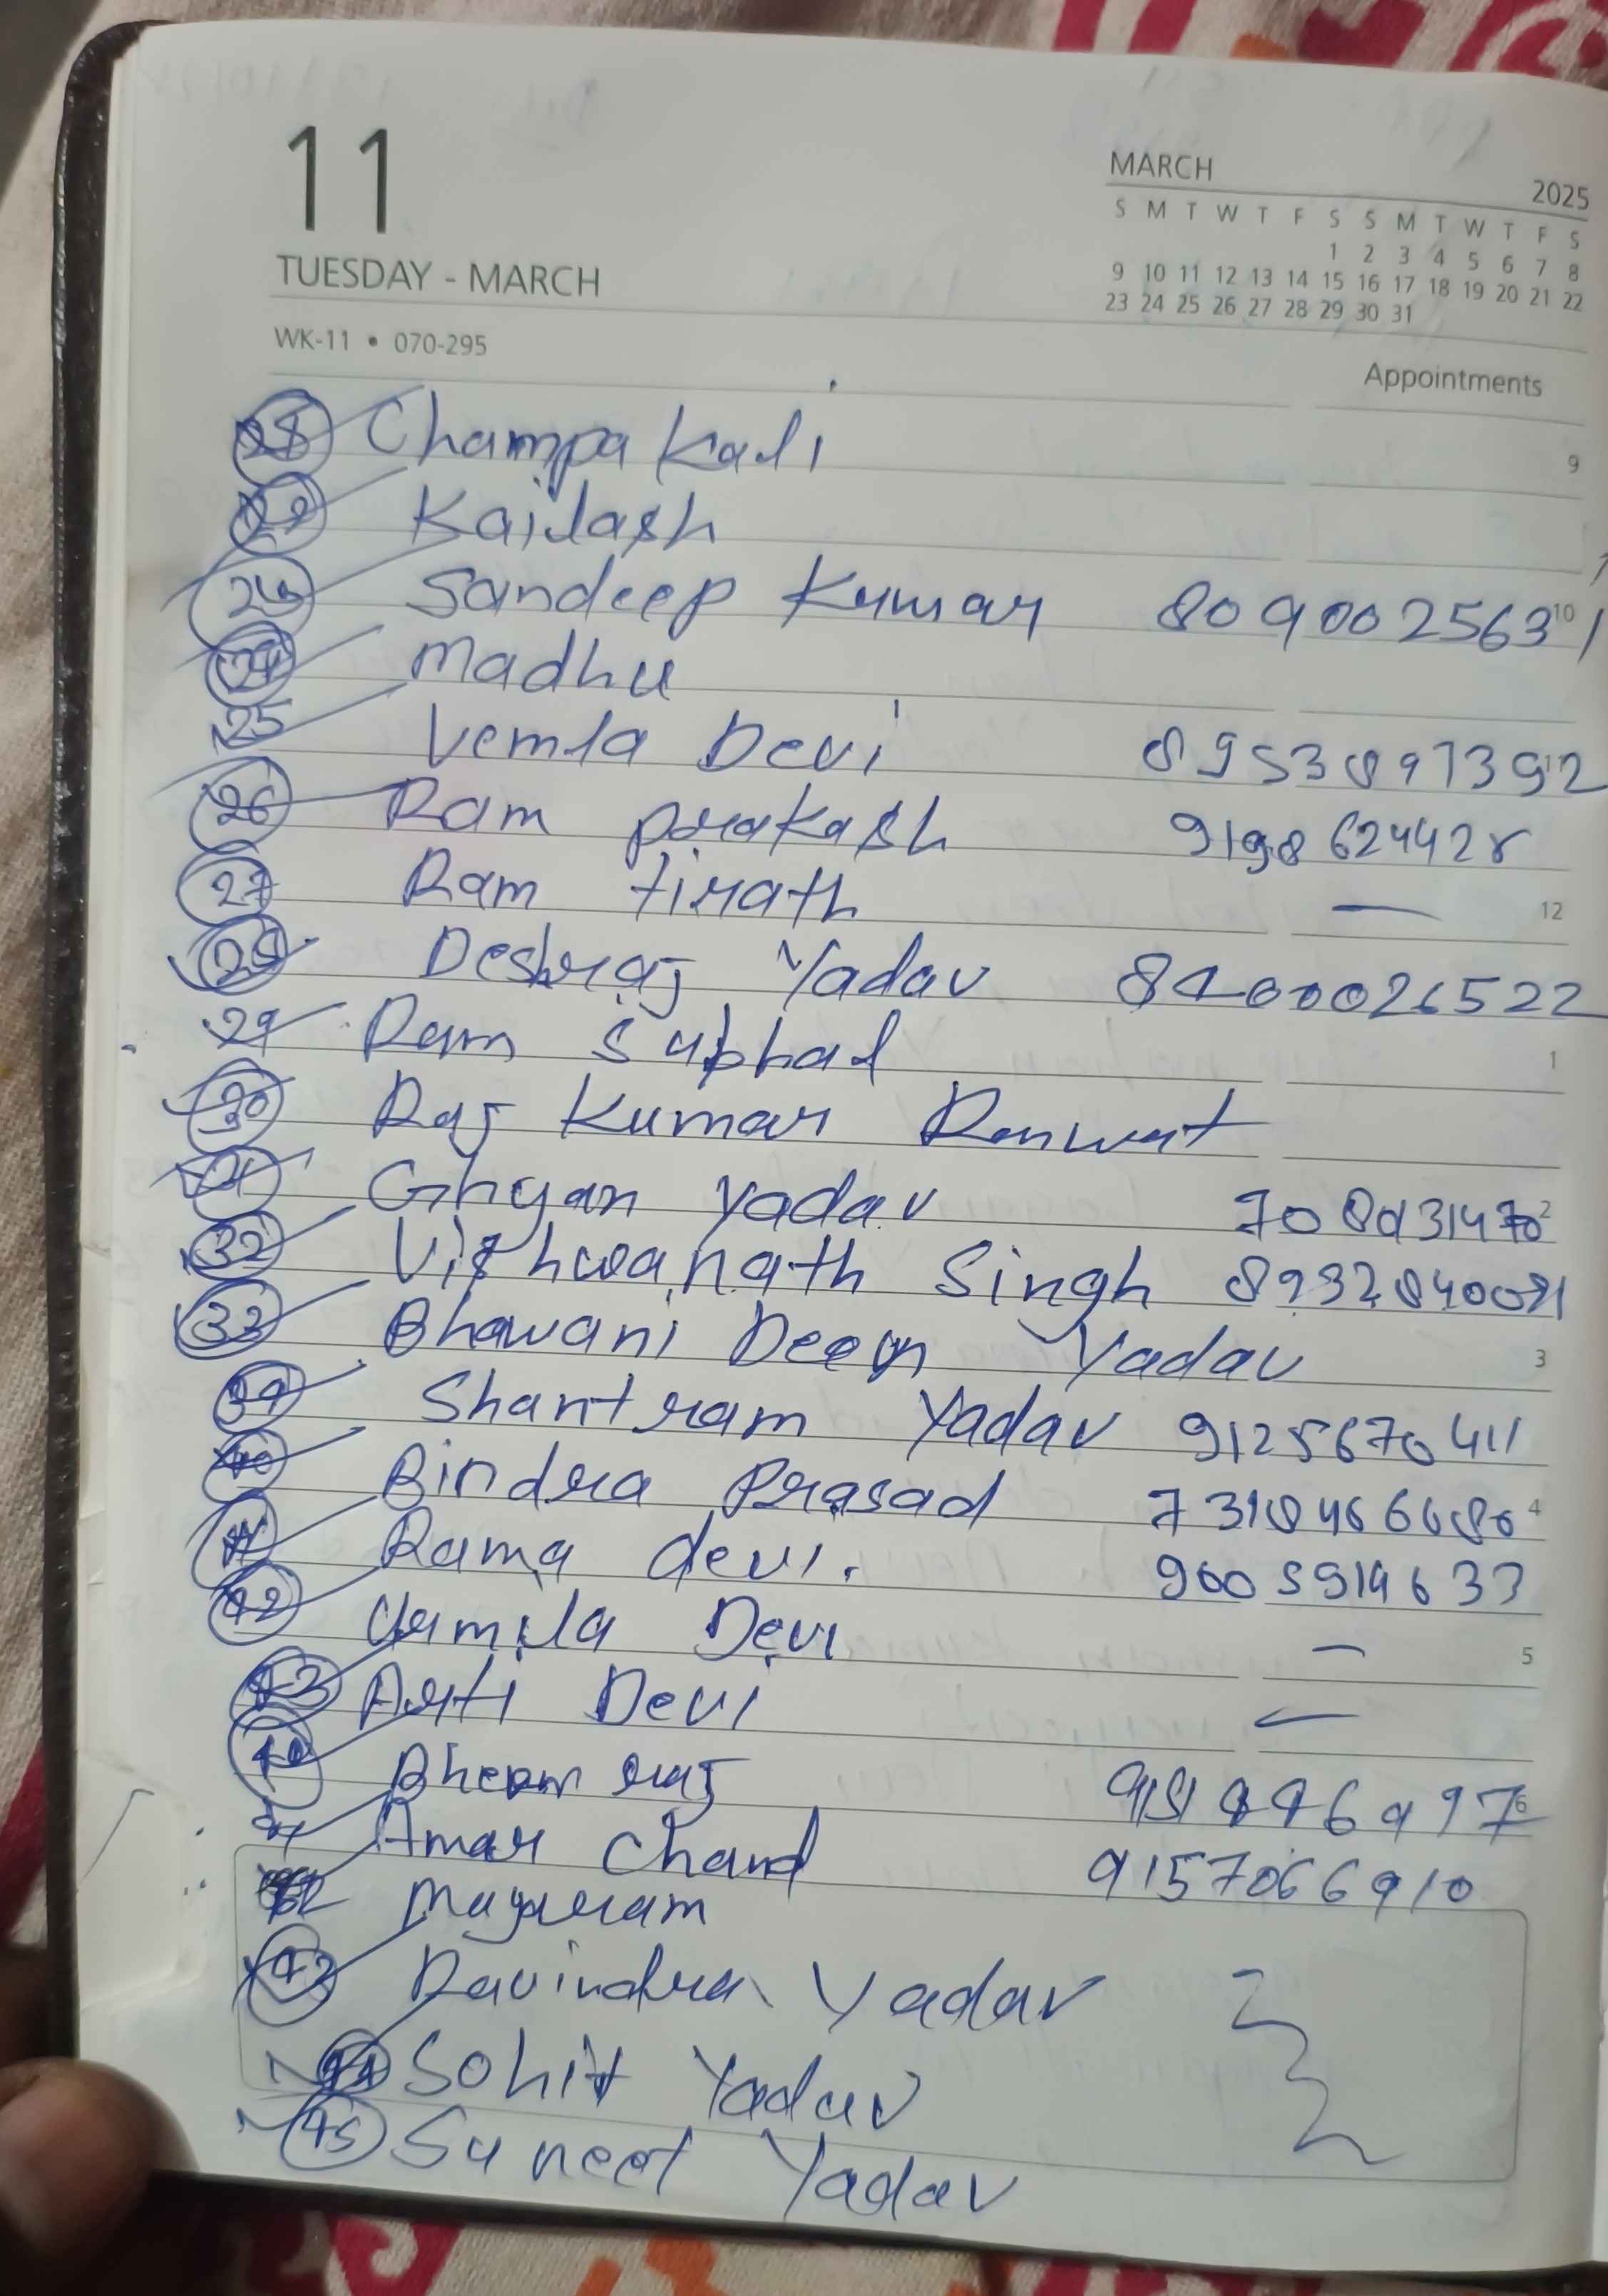 11
TUESDAY - MARCH
WK-11 • 070-295
MARCH 2025
S M T W T F S S M T W T F S
1 2 3 4 5 6 7 8
9 10 11 12 13 14 15 16 17 18 19 20 21 22
23 24 25 26 27 28 29 30 31
Appointments
Champa Kali 9
Kailash
Sandeep Kumar 8090025631 10
Madhu
25 Vemla Devi
26 Ram prakash
27 Ram tirath — 12
28 Deshraj Yadav 8400026522
29 Ram Subhad 1
30 Raj Kumar
Ghyan Yadav 2
32 Vishwanath Singh
33 Bhawani Deen Yadav 3
Shantram Yadav 9125670411
Bindra Prasad 4
Rama devi.
42 Urmila Devi — 5
43 Arti Devi —
Bheem raj 6
Amar Chand 9157066910
43 Ravindra Yadav
44 Sohit Yadav
45 Suneet Yadav